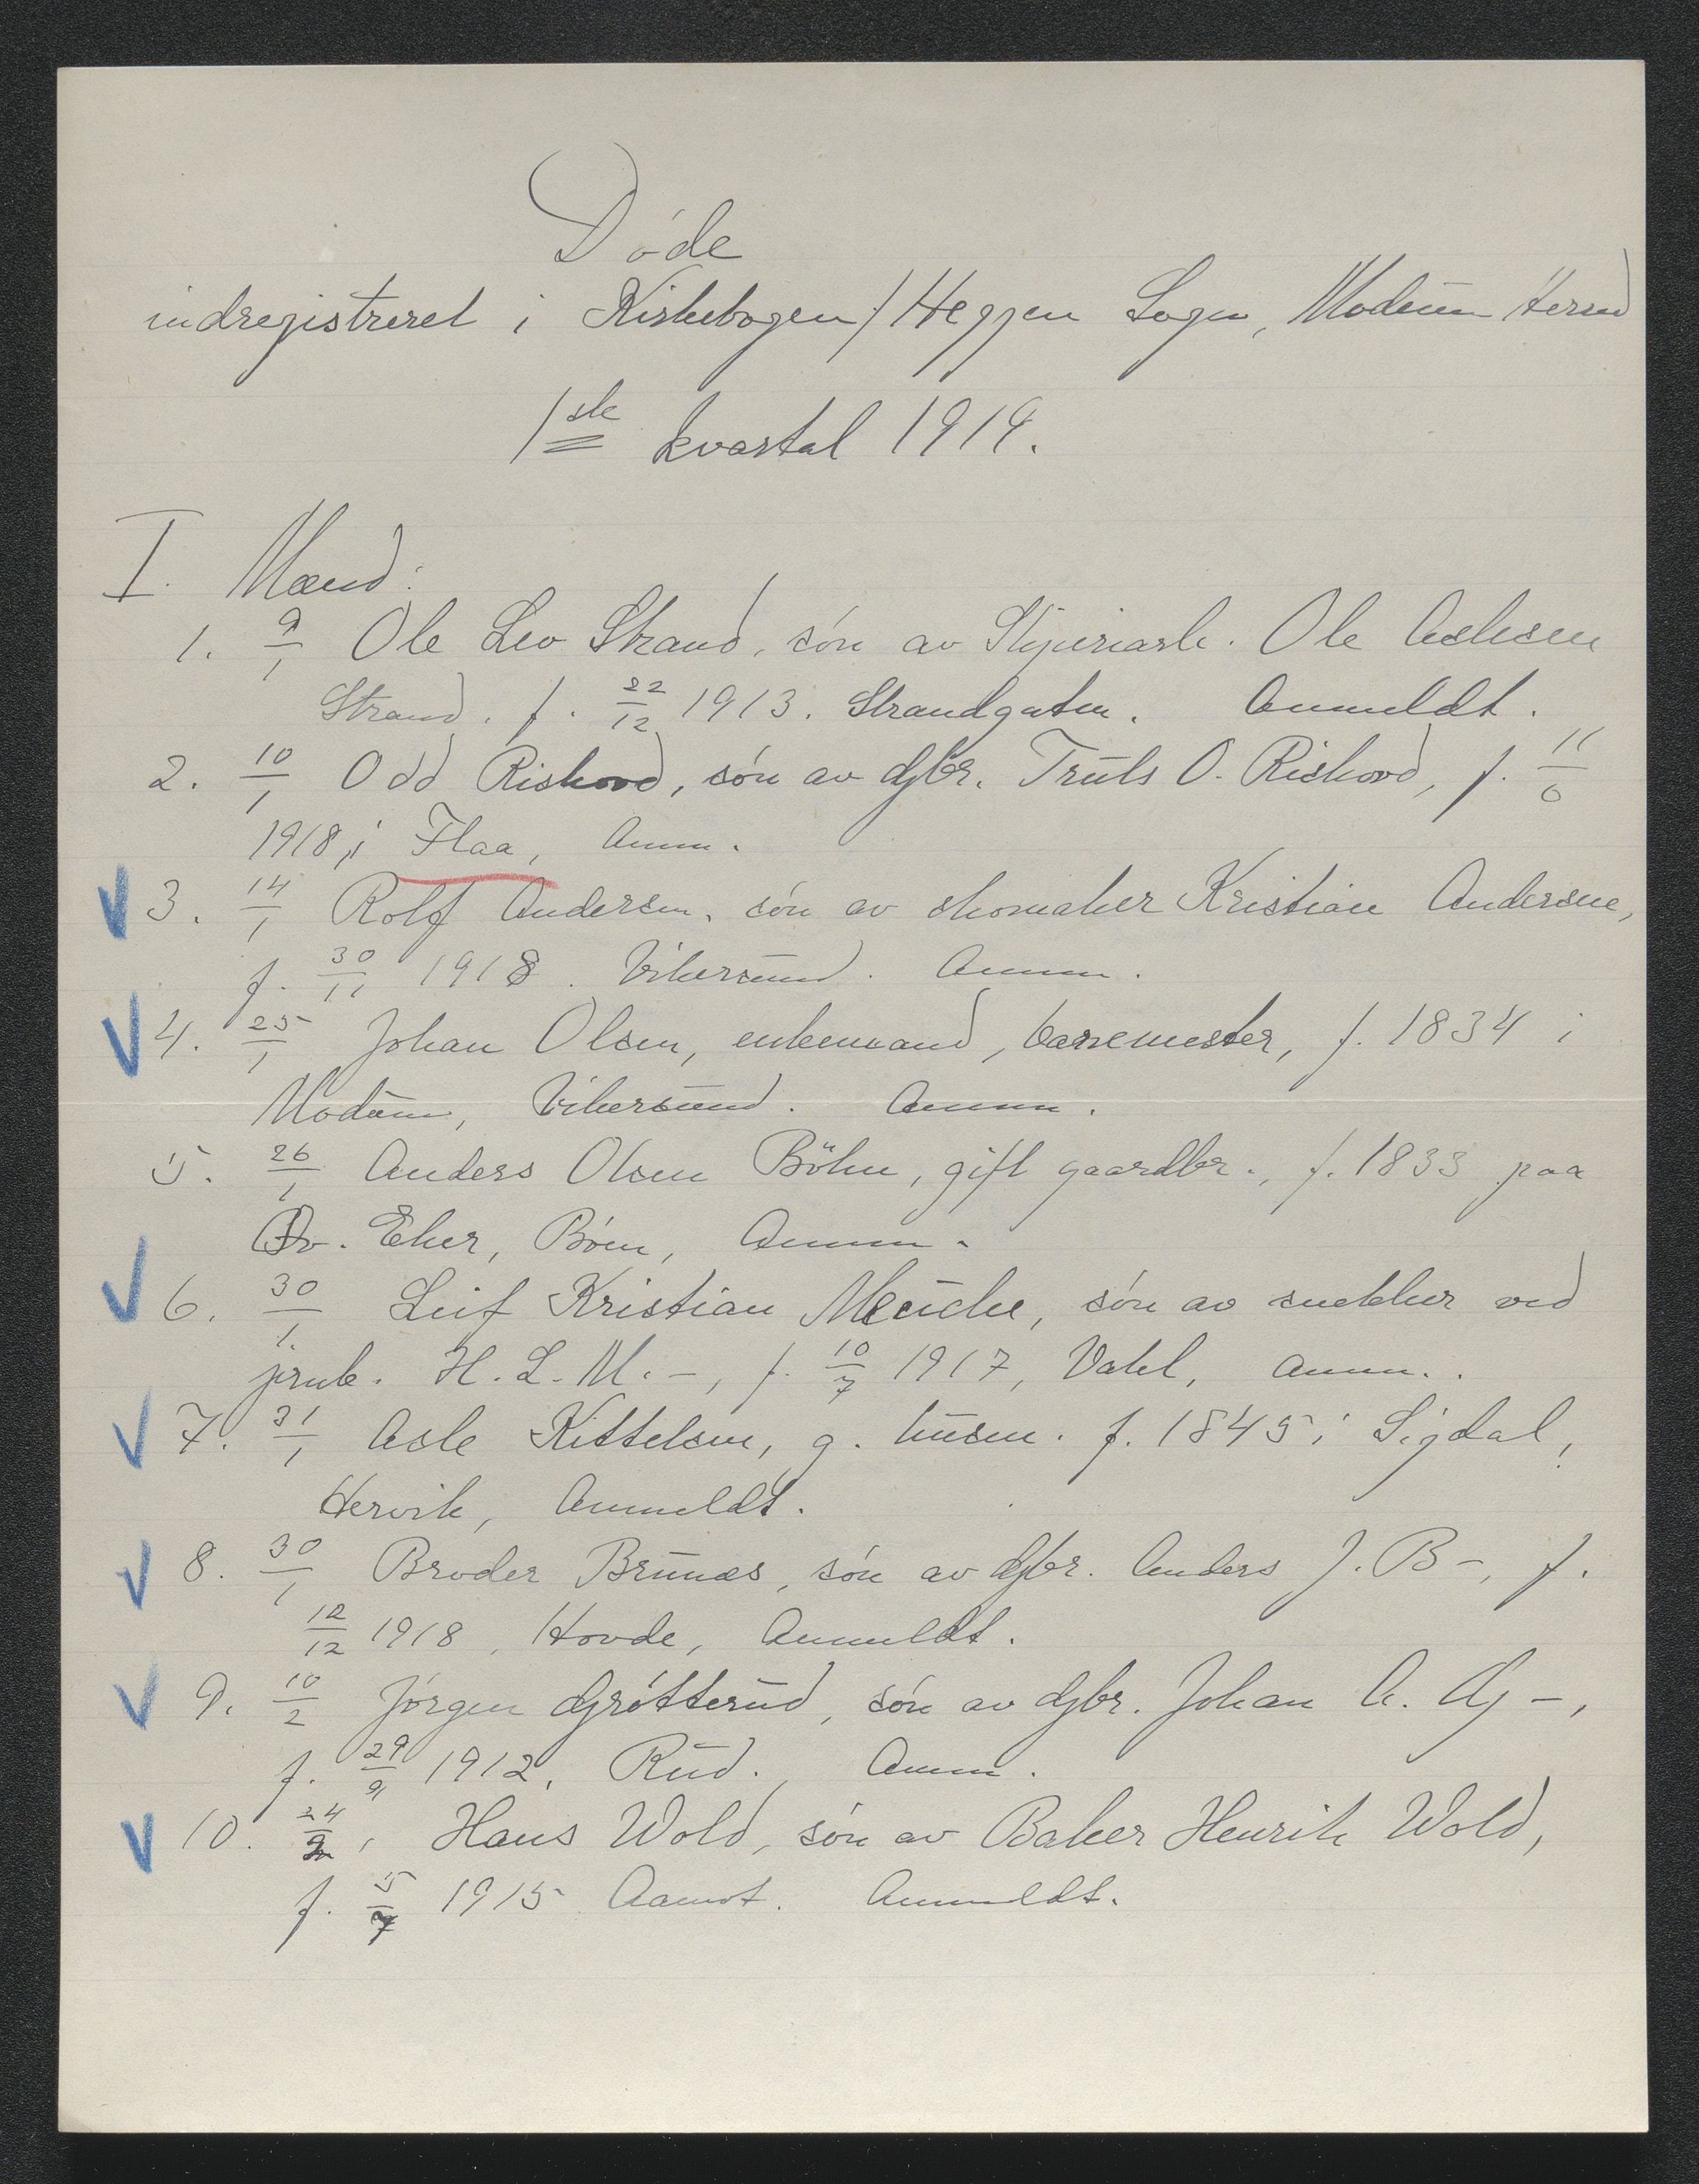 Døde
indregistreret i Kirkebogen f Heggen Sogn, Modum Herred
1ste kvartal 1919.
I. Mænd:
1. 9/1 Ole Leo Strand, søn av Ole Aslesen
Strand. f. 22/12 1913. Strandgaten. Anmeldt.
2. 10/1 Odd Riskovd, søn av Gbr. Truls O. Riskovd, f. 11/6
1918, i Flaa, Anm.
3. 14/1 Rolf Andersen, søn av skomaker Kristian Andersen,
f. 30/11 1918. Vikersund. Anm.
4. 25/1 Johan Olsen, enkemand, f. 1834 i
Modum, Vikersund. Anm.
5. 26/1 Anders Olsen Böhn, gift gaardbr., f. 1833 paa
Øv. Eker, Bøen, Anm.
6. 30/1 Leif Kristian søn av snekker ved
jernb. H. L. M. -, f. 10/7 1917, Anm..
7. 31/1 Asle Kittelsen, g. husm. f. 1845 i Sigdal,
Hervik, Anmeldt.
8. 30/1 Broder Brunæs, søn av Gbr. Anders J. B-, f.
12/12 1918, Hovde, Anmeldt.
9. 10/2 Jørgen Grøtterud, søn av Gbr. Johan A. G -,
f. 29/9 1912, Rud., Anm.
10. 24/2, Hans Wold, søn av Baker Henrik Wold,
f. 5/7 1915 Aamot. Anmeldt.